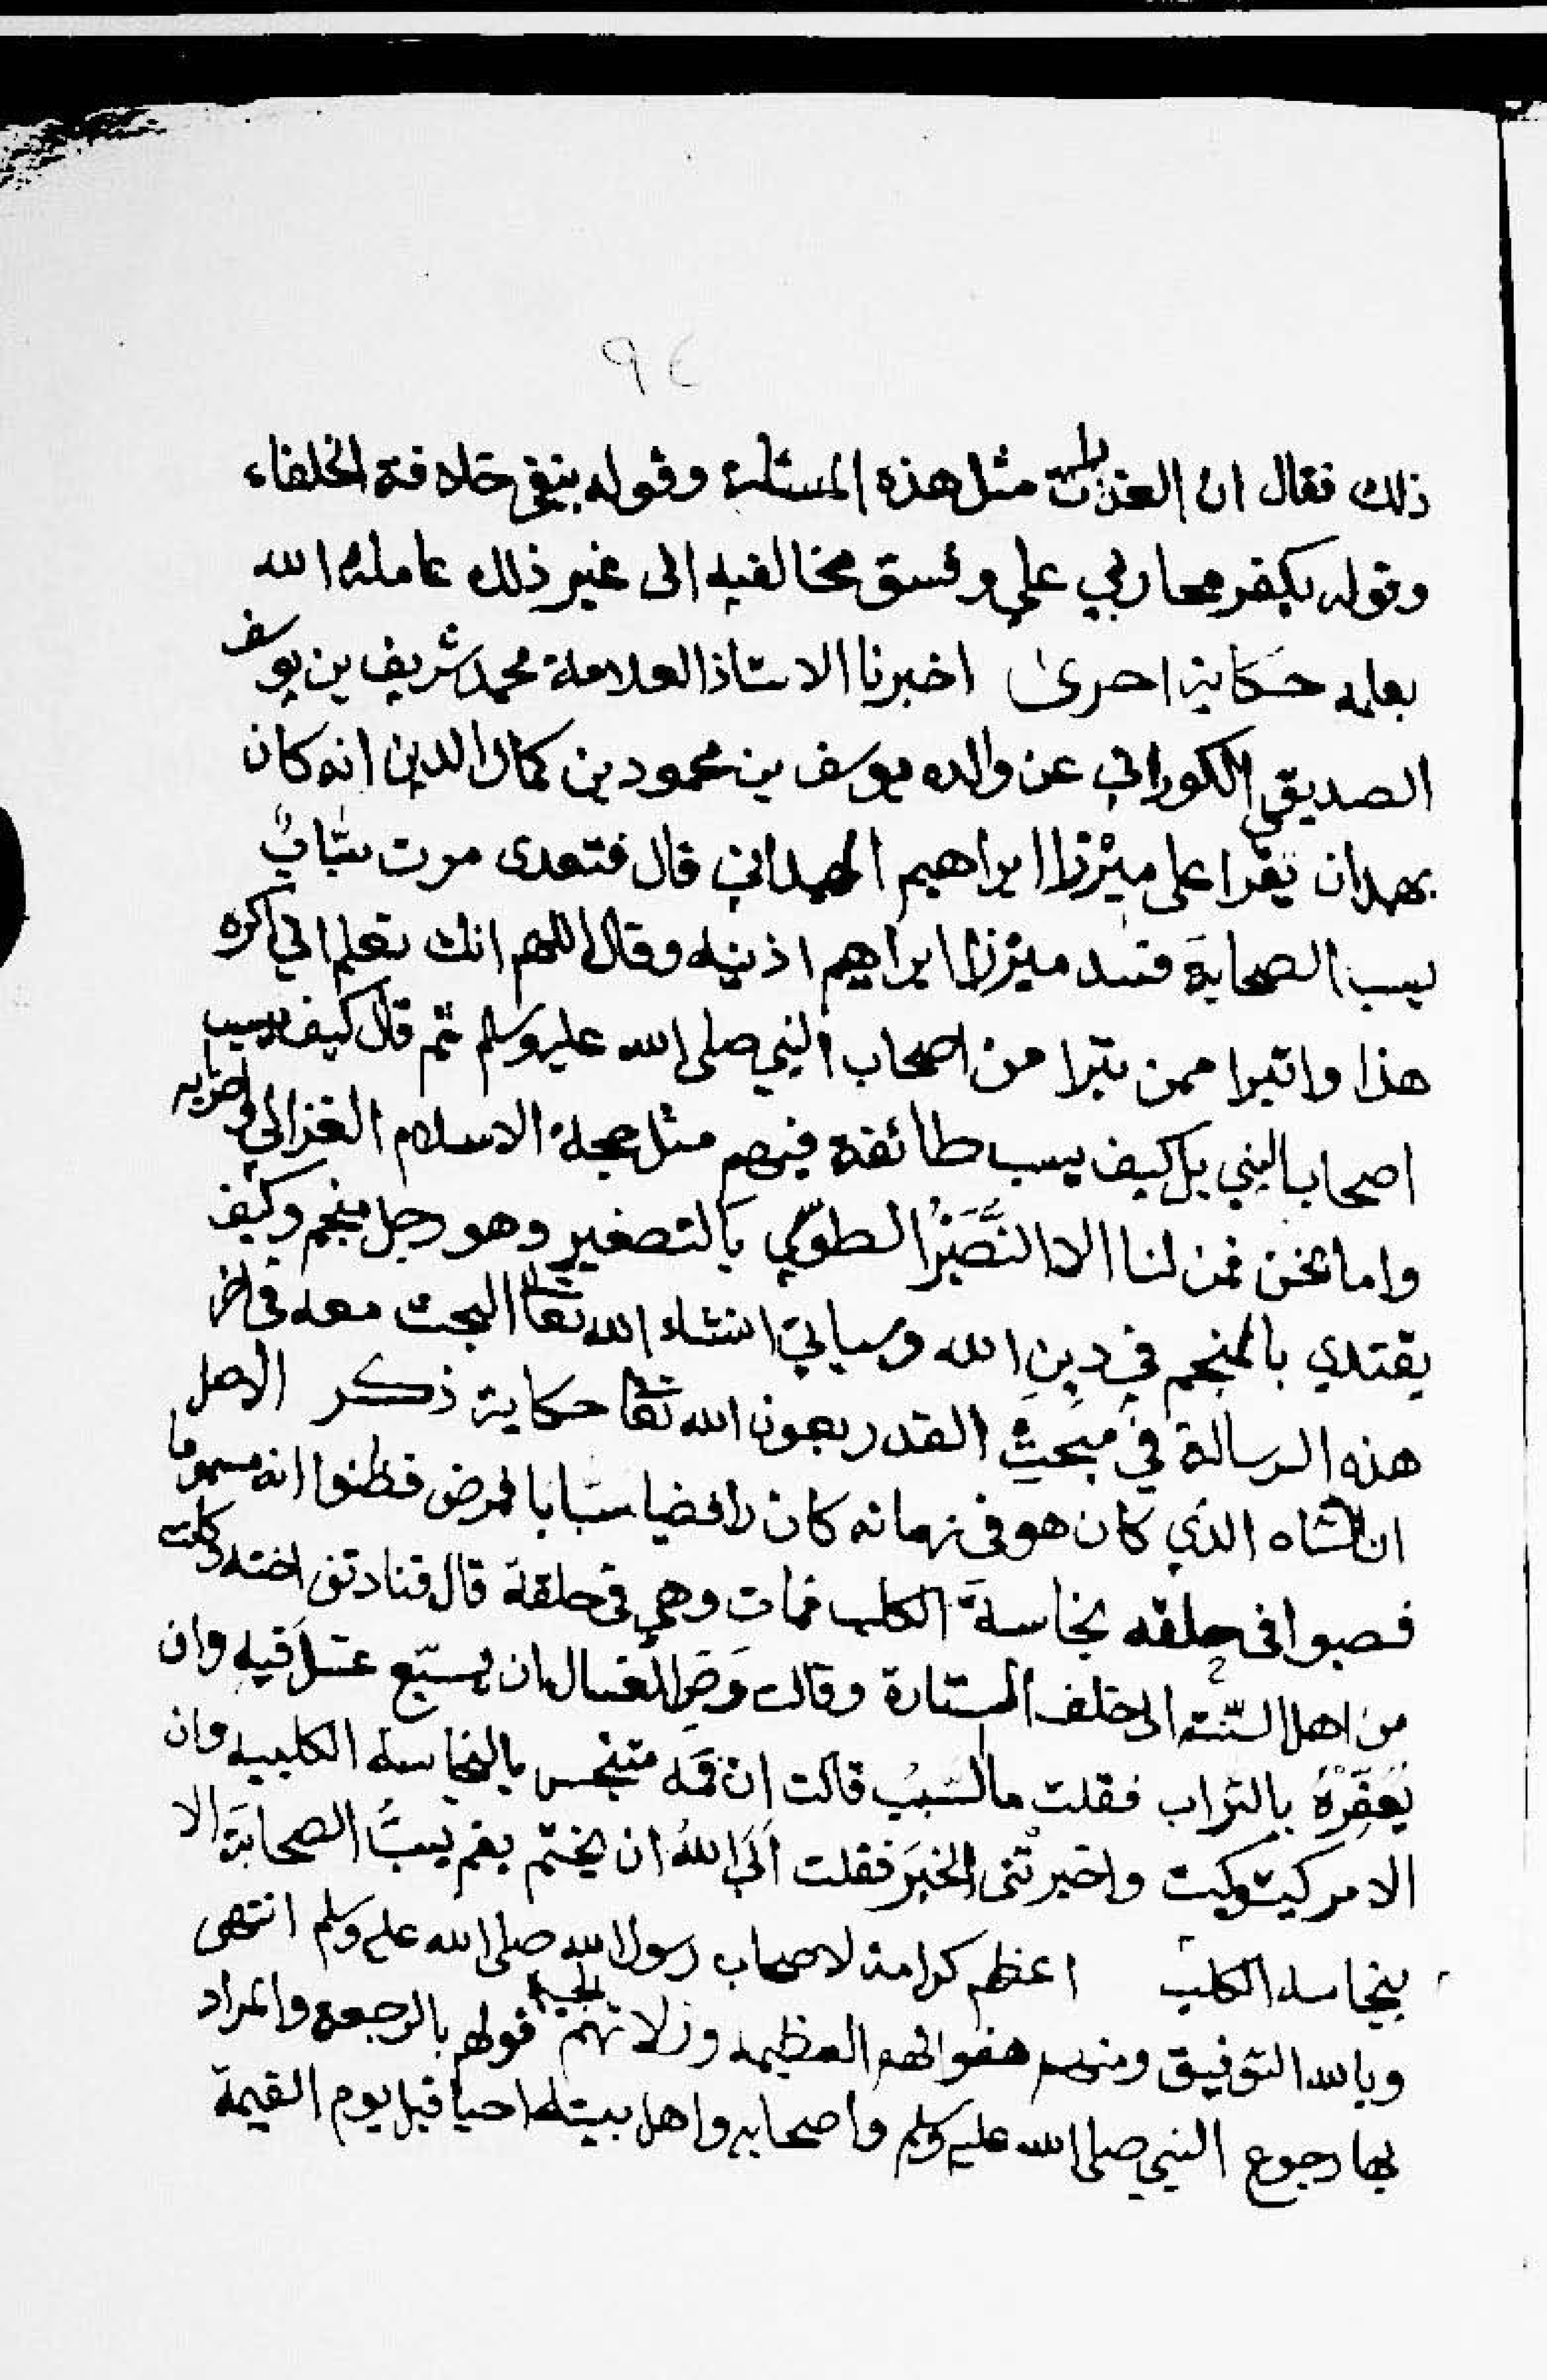 ٩٤
ذلك فقال ان العذاب مثل هذه المسئلة وقوله بنفي خلافة الخلفاء
وقوله بكفر محاربي علي وفسق مخالفيه الى غير ذلك عامله الله
بعلمه حكاية اخرى اخبرنا الاستاذ العلامة محمد شريف بن يوسف
الصديقي الكوراني عن والده يوسف بن محمود بن كمال الدين انه كان
بهمدان يقرا على ميرزا ابراهيم الهمداني قال فتعدى مرت سبّابٌ
يسب الصحابة فسد ميرزا ابراهيم اذنيه وقال اللهم انك تعلم اني اكره
هذا واتبرا ممن تبرا من اصحاب النبي صلى الله عليه وسلم ثم قال كيف يسب
اصحاب النبي بل كيف يسب طائفة فيهم مثل حجة الاسلام الغزالي واضرابه
واما نحن فمن لنا الا النُّصَيْرُ الطوسي بالتصغير وهو رجل منجم وكيف
يقتدي بالمنجم في دين الله وسياتي انشاء الله تعا البحث معه في اخر
هذه الرسالة في مبحث القدر بعون الله تعا حكاية ذكر الاصل
ان الشاه الذي كان هو في زمانه كان رافضيا سبّابا فمرض فظنوا انه مسموما
فصبوا في حلقه نجاسة الكلب فمات وهي في حلقه قال فنادتني اخته وكانت
من اهل السّنّة الى خلف الستارة وقالت وَصِّ الغسال ان يسبّع غسل فيه وان
يُعَفِّرَهُ بالتراب فقلت ما السَبَبُ قالت ان فمه متنجس بالنجاسة الكلبيه وان
الامر كيت وكيت واخبرتْني الخبَر فقلت اَبَى اللهُ ان يختم بفم يسبُّ الصحابَة الا
بنجاسة الكلب اعظم كرامة لاصحاب رسول الله صلى الله عليه وسلم انتهى
وبالله التوفيق ومنهم هفواتهم العظيمه وزلاتهم الجسيمة قولهم بالرجعة والمراد
بها رجوع النبي صلى الله عليه وسلم واصحابه واهل بيته احيا قبل يوم القيمة